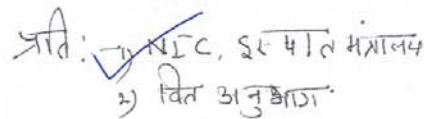 प्रति: 1) NIC, इस्पात मंत्रालय
2) वित अनुभाग